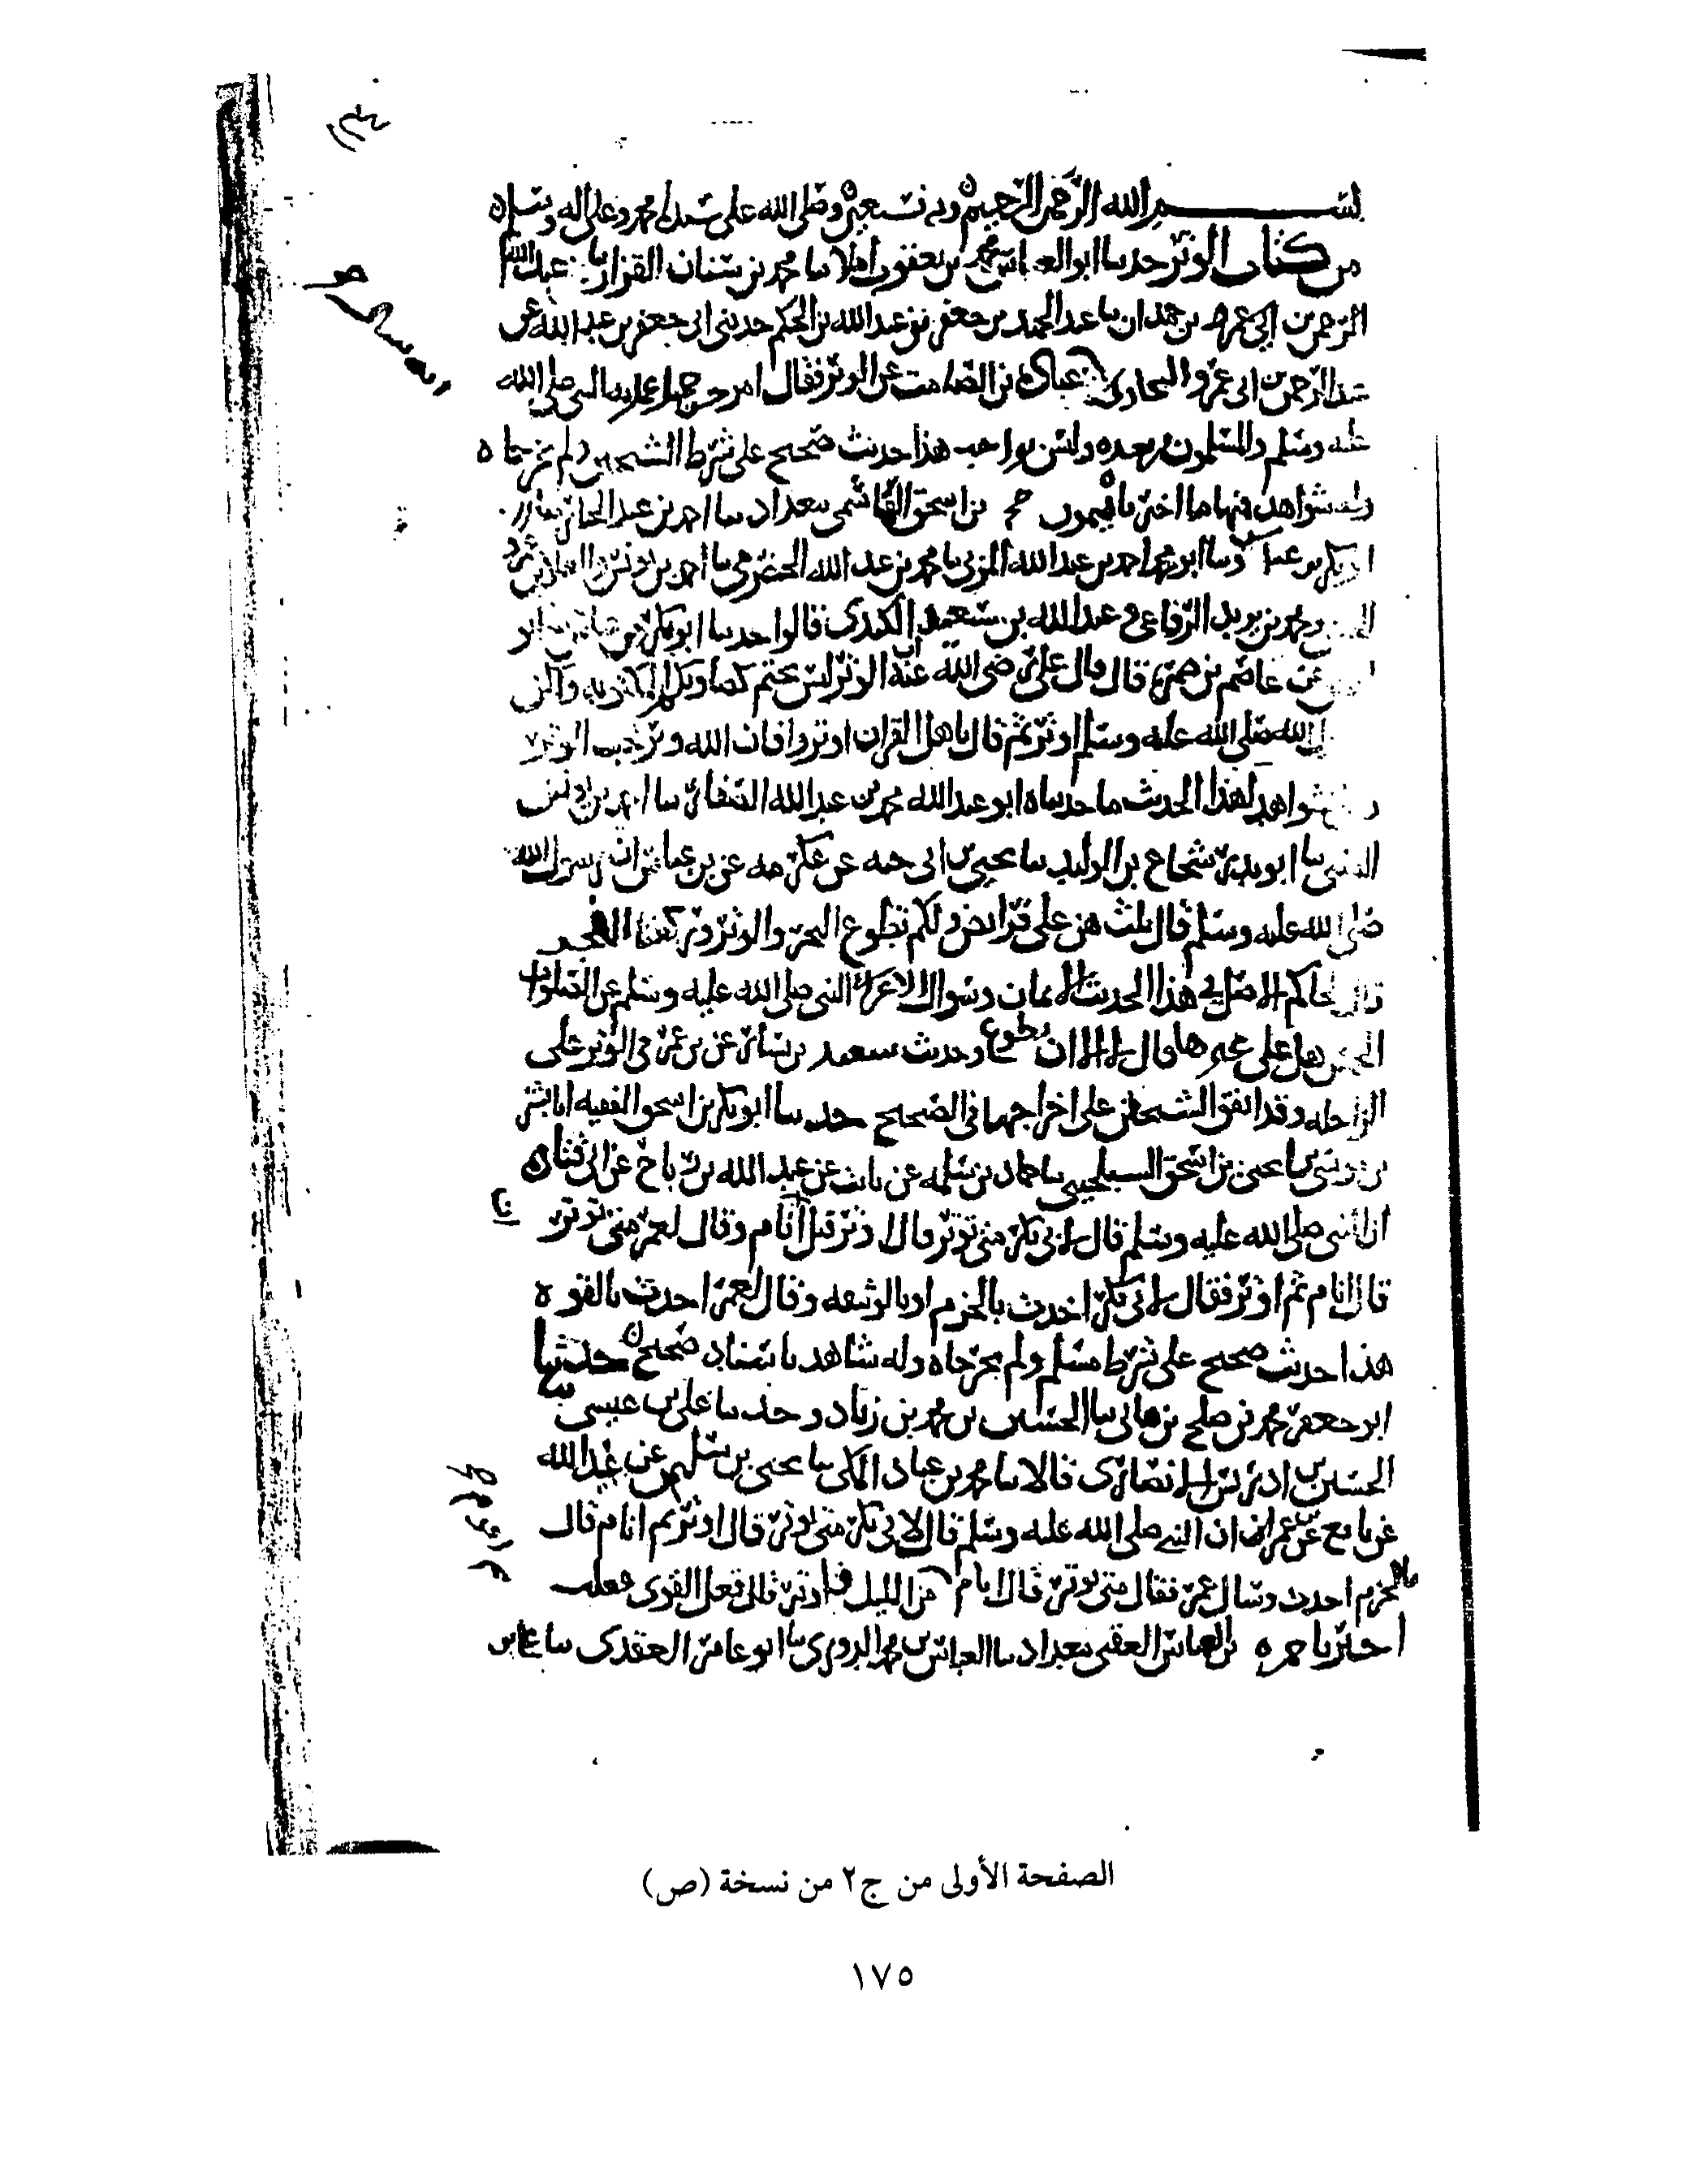 بسم الله الرحمن الرحيم وبه نستعين وصلى الله على سيدنا محمد وعلى اله وسلم
من كتاب الوتر حدثنا ابو العباس محمد بن يعقوب املا ثنا محمد بن سنان القزاز ثنا عبد الله
الرحمن بن ابي عمره عبد الحميد بن جعفر بن عبد الله بن الحكم حدثني ابي جعفر بن عبد الله عن
عبد الرحمن بن ابي عمرو النجاري عبادة بن الصامت عن الوتر فقال امر حسن جميل عمل به النبي صلى الله
عليه وسلم والمسلمون من بعده وليس بواجب هذا حديث صحيح على شرط الشيخين ولم يخرجاه
وله شواهد فمنها ما اخبرناه بن اسحق الهاشمي ببغداد ثنا احمد بن عبد الجبار ثنا
ابو بكر بن عياش وثنا ابو محمد احمد بن عبد الله المزني ثنا محمد بن عبد الله الحضرمي ثنا احمد بن يونس
ومحمد بن يزيد الرفاعي وعبد الله بن سعيد الكندي قالوا حدثنا ابو بكر بن عياش
عن عاصم بن ضمرة قال قال علي رضي الله عنه ان الوتر ليس بحتم كصلوتكم المكتوبه ولكن
الله صلى الله عليه وسلم اوتر ثم قال يا اهل القران اوتروا فان الله وتر يحب الوتر
شواهد لهذا الحديث ما حدثناه ابو عبد الله محمد بن عبد الله الصفار ثنا احمد بن يونس
الضبي ثنا ابو بدر شجاع بن الوليد ثنا يحيى بن ابي حيه عن عكرمه عن بن عباس ان رسول الله
صلى الله عليه وسلم قال ثلث هن علي فرايض ولكم تطوع النحر والوتر وركعتا الفجر
قال الحاكم الاصل في هذا الحديث الايمان وسوال الاعرابي النبي صلى الله عليه وسلم عن الصلوات
الخمس هل علي غيرها قال لا الا ان تطوع وحديث سعيد بن يسار عن بن عمر في الوتر على
الراحله وقد اتفق الشيخان على اخراجهما في الصحيح حدثنا ابو بكر بن اسحق الفقيه انا بشر
بن موسى ثنا يحيى بن اسحق السيلحيني ثنا حماد بن سلمه عن ثابت عن عبد الله بن رباح عن ابي قتاده
ان النبي صلى الله عليه وسلم قال لابي بكر متى توتر قال اوتر قبل ان انام وقال لعمر متى توتر
قال انام ثم اوتر فقال لابي بكر اخذت بالحزم او بالوثيقه وقال لعمر اخذت بالقوه
هذا حديث صحيح على شرط مسلم ولم يخرجاه وله شاهد باسناد صحيح حدثنا
ابو جعفر محمد بن صلح بن هاني ثنا الحسين بن محمد بن زياد وحدثنا علي بن عيسى ثنا
الحسين بن ادريس الانصاري قالا ثنا محمد بن عباد المكي ثنا يحيى بن سليم عن عبيد الله
عن نافع عن بن عمر ان النبي صلى الله عليه وسلم قال لابي بكر متى توتر قال اوتر ثم انام قال
بالحزم اخذت وسال عمر فقال متى توتر قال انام ثم اقوم من الليل فاوتر قال فعل القوي فعلت
اخبرنا حمزه بن العباس العقبي ببغداد ثنا العباس بن محمد الدوري ثنا ابو عامر العقدي ثنا
الصفحة الأولى من ج٢ من نسخة (ص)
١٧٥